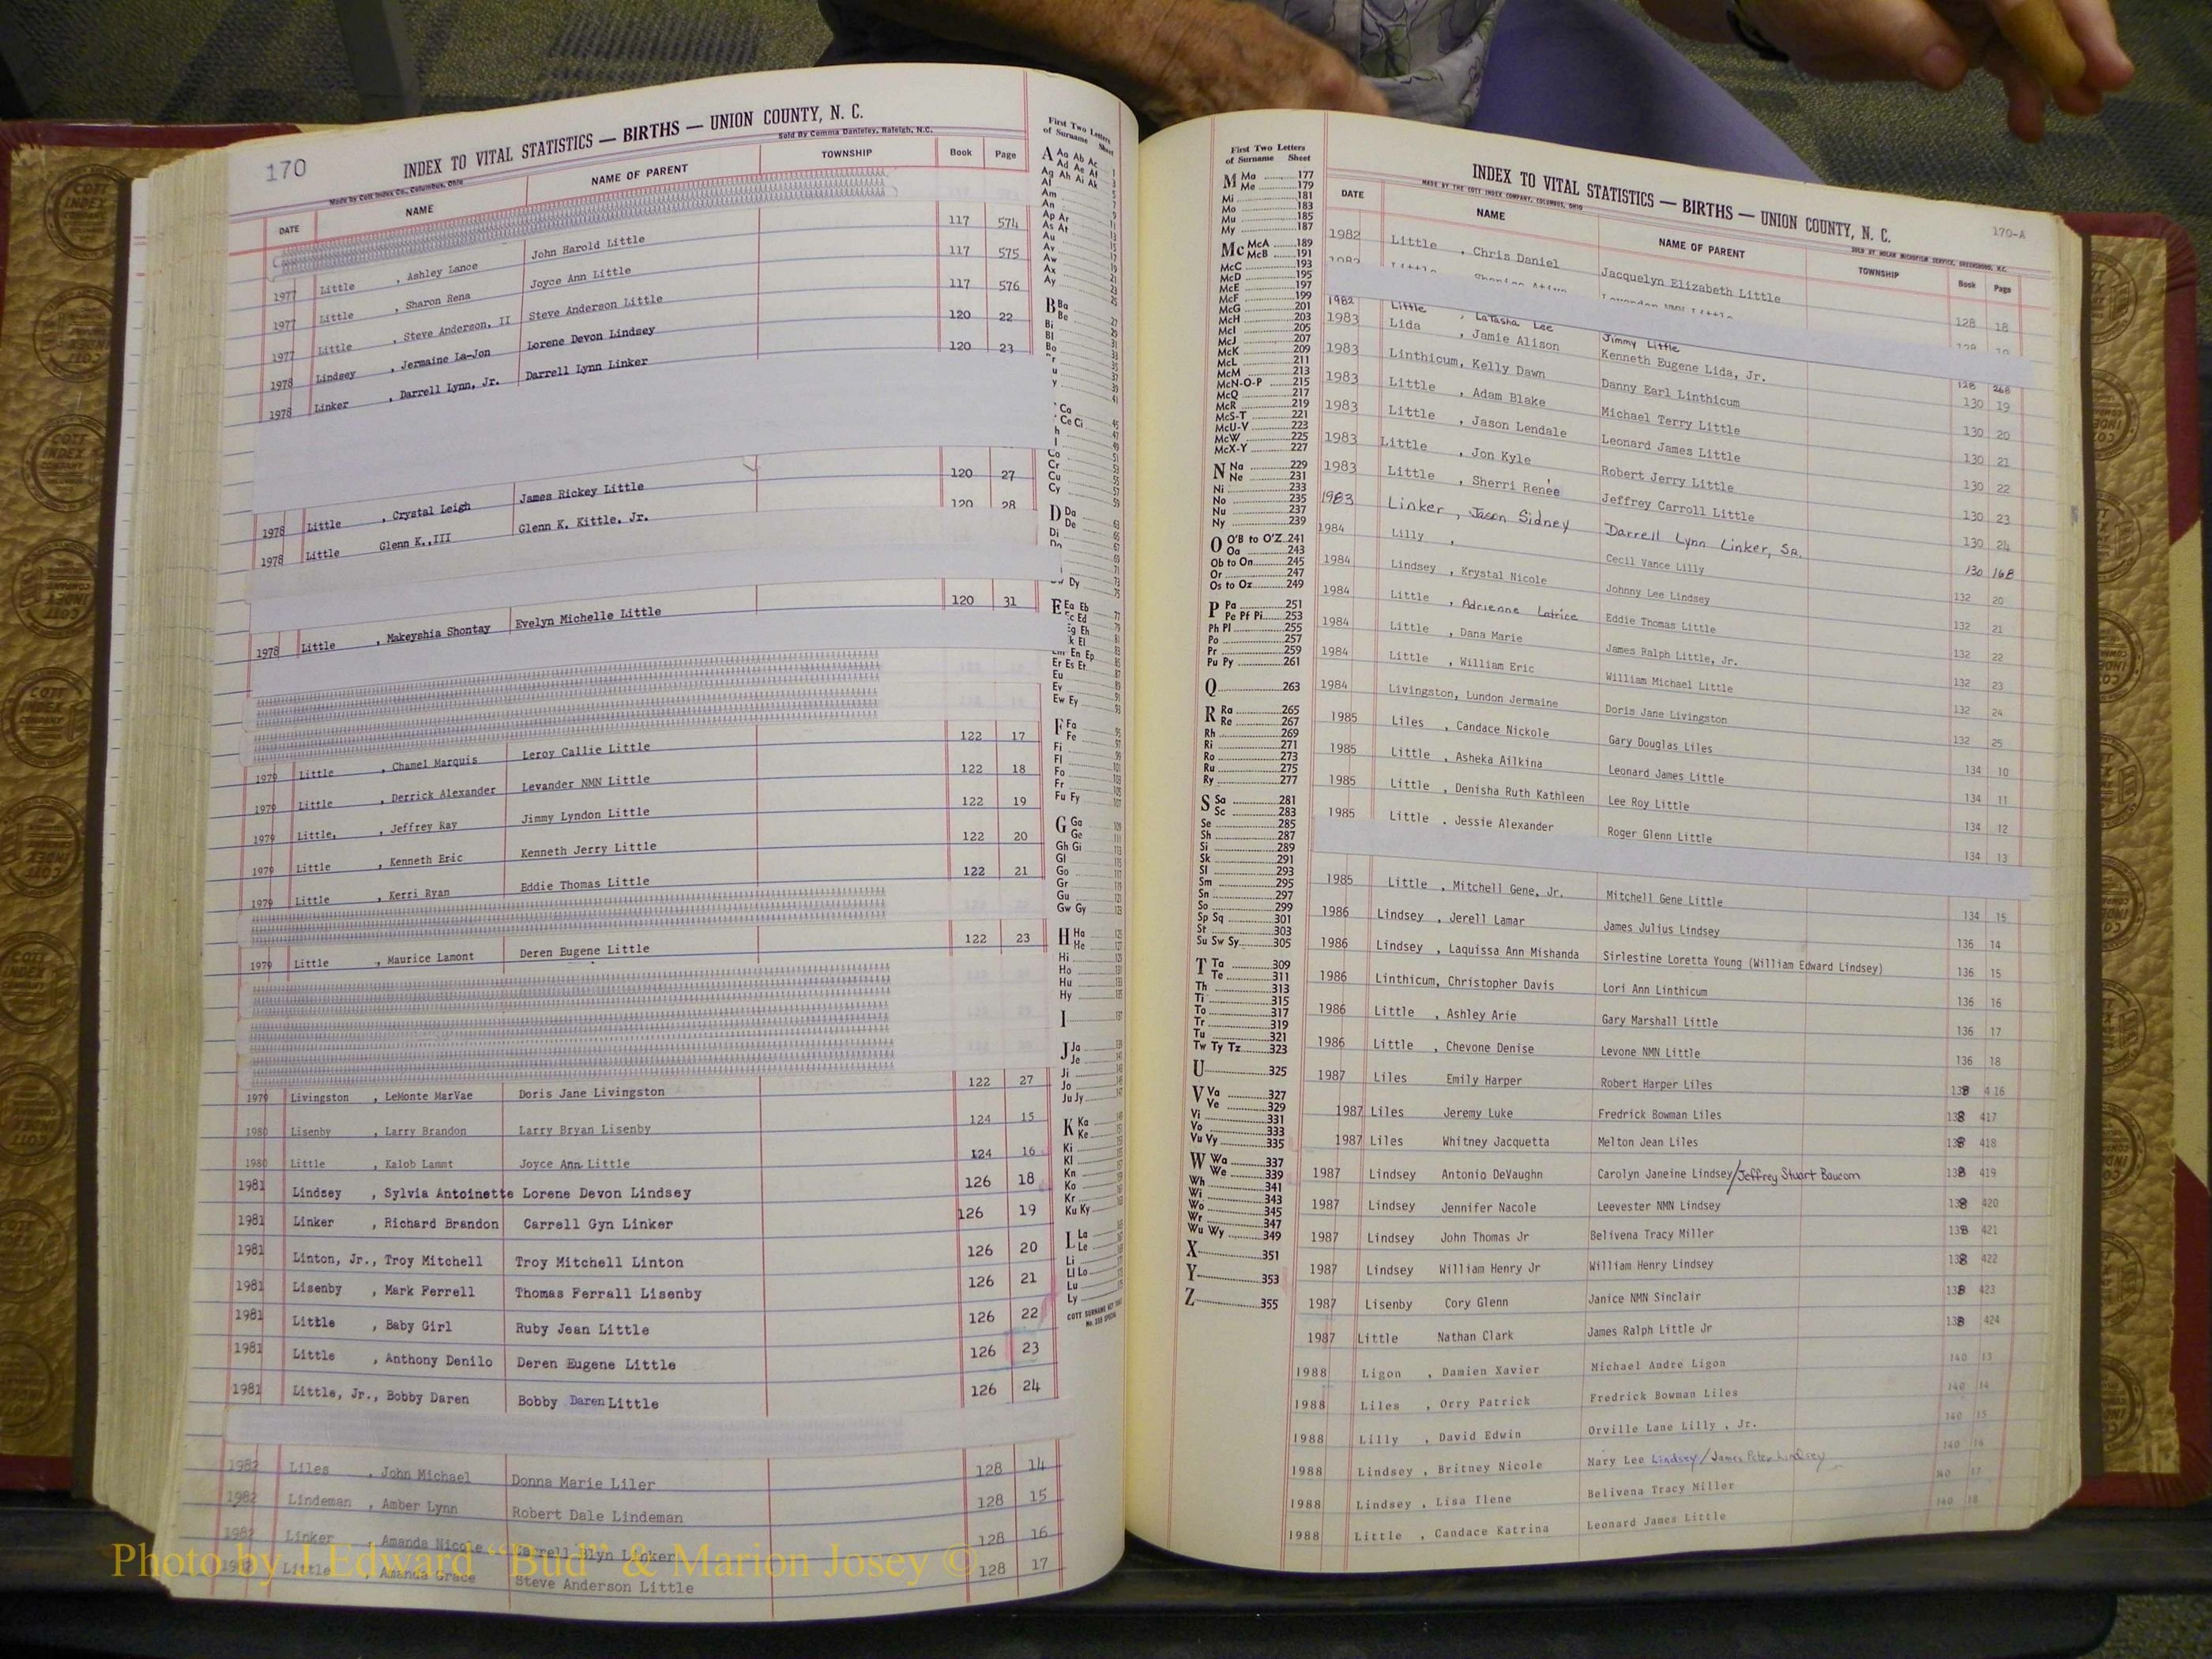 170
INDEX TO VITAL STATISTICS — BIRTHS — UNION COUNTY, N. C.
Made by Cott Index Co., Columbus, Ohio
Sold By Comma Danieley, Raleigh, N.C.
DATE NAME NAME OF PARENT TOWNSHIP Book Page
1977 Little , Ashley Lance John Harold Little 117 574
1977 Little , Sharon Rena Joyce Ann Little 117 575
1977 Little , Steve Anderson, II Steve Anderson Little 117 576
1978 Lindsey , Jermaine La-Jon Lorene Devon Lindsey 120 22
1978 Linker , Darrell Lynn, Jr. Darrell Lynn Linker 120 23
1978 Little , Crystal Leigh James Rickey Little 120 27
1978 Little Glenn K.,III Glenn K. Kittle, Jr. 120 28
1978 Little , Makeyshia Shontay Evelyn Michelle Little 120 31
1979 Little , Chamel Marquis Leroy Callie Little 122 17
1979 Little , Derrick Alexander Levander NMN Little 122 18
1979 Little, , Jeffrey Ray Jimmy Lyndon Little 122 19
1979 Little , Kenneth Eric Kenneth Jerry Little 122 20
1979 Little , Kerri Ryan Eddie Thomas Little 122 21
1979 Little , Maurice Lamont Deren Eugene Little 122 23
1979 Livingston , LeMonte MarVae Doris Jane Livingston 122 27
1980 Lisenby , Larry Brandon Larry Bryan Lisenby 124 15
1980 Little , Kalob Lammt Joyce Ann Little 124 16
1981 Lindsey , Sylvia Antoinette Lorene Devon Lindsey 126 18
1981 Linker , Richard Brandon Carrell Gyn Linker 126 19
1981 Linton, Jr., Troy Mitchell Troy Mitchell Linton 126 20
1981 Lisenby , Mark Ferrell Thomas Ferrall Lisenby 126 21
1981 Little , Baby Girl Ruby Jean Little 126 22
1981 Little , Anthony Denilo Deren Eugene Little 126 23
1981 Little, Jr., Bobby Daren Bobby Daren Little 126 24
1982 Liles , John Michael Donna Marie Liler 128 14
1982 Lindeman , Amber Lynn Robert Dale Lindeman 128 15
1982 Linker , Amanda Nicole Linker 128 16
Little , Amanda Grace Steve Anderson Little 128 17
First Two Letters
of Surname Sheet
A Aa Ab Ac
Ad Ae Af
Ag Ah Ai Ak
Al
Am
An
Ap Ar
As At
Au
Av
Aw
Ax
Ay
B Ba
Be
Bi
Bl
Bo
Ca
Ce Ci
Co
Cr
Cu
Cy
D Da
De
Di
Dy
E Ea Eb
Ec Ed
Eg Eh
Ek El
Em En Ep
Er Es Et
Eu
Ev
Ew Ey
F Fa
Fe
Fi
Fl
Fo
Fr
Fu Fy
G Ga
Ge
Gh Gi
Gl
Go
Gr
Gu
Gw Gy
H Ha
He
Hi
Ho
Hu
Hy
I
J Ja
Je
Ji
Jo
Ju Jy
K Ka
Ke
Ki
Kl
Kn
Ko
Kr
Ku Ky
L La
Le
Li
Ll Lo
Lu
Ly
First Two Letters
of Surname Sheet
M Ma 177
Me 179
Mi 181
Mo 183
Mu 185
My 187
Mc McA 189
McB 191
McC 193
McD 195
McE 197
McF 199
McG 201
McH 203
McI 205
McJ 207
McK 209
McL 211
McM 213
McN-O-P 215
McQ 217
McR 219
McS-T 221
McU-V 223
McW 225
McX-Y 227
N Na 229
Ne 231
Ni 233
No 235
Nu 237
Ny 239
O O'B to O'Z 241
Oa 243
Ob to On 245
Or 247
Os to Oz 249
P Pa 251
Pe Pf Pi 253
Ph Pl 255
Po 257
Pr 259
Pu Py 261
Q 263
R Ra 265
Re 267
Rh 269
Ri 271
Ro 273
Ru 275
Ry 277
S Sa 281
Sc 283
Se 285
Sh 287
Si 289
Sk 291
Sl 293
Sm 295
Sn 297
So 299
Sp Sq 301
St 303
Su Sw Sy 305
T Ta 309
Te 311
Th 313
Ti 315
To 317
Tr 319
Tu 321
Tw Ty Tz 323
U 325
V Va 327
Ve 329
Vi 331
Vo 333
Vu Vy 335
W Wa 337
We 339
Wh 341
Wi 343
Wo 345
Wr 347
Wu Wy 349
X 351
Y 353
Z 355
INDEX TO VITAL STATISTICS — BIRTHS — UNION COUNTY, N. C.
170-A
MADE BY THE COTT INDEX COMPANY, COLUMBUS, OHIO
SOLD BY NOLAN MICROFILM SERVICE, GREENSBORO, N.C.
DATE NAME NAME OF PARENT TOWNSHIP Book Page
1982 Little , Chris Daniel Jacquelyn Elizabeth Little 128 18
1982 Little , LaTasha Lee Jimmy Little 128 268
1983 Lida , Jamie Alison Kenneth Eugene Lida, Jr. 130 19
1983 Linthicum, Kelly Dawn Danny Earl Linthicum 130 20
1983 Little , Adam Blake Michael Terry Little 130 21
1983 Little , Jason Lendale Leonard James Little 130 22
1983 Little , Jon Kyle Robert Jerry Little 130 23
1983 Little , Sherri Renée Jeffrey Carroll Little 130 24
1983 Linker , Jason Sidney Darrell Lynn Linker, Sr. 130 168
1984 Lilly , Cecil Vance Lilly 132 20
1984 Lindsey , Krystal Nicole Johnny Lee Lindsey 132 21
1984 Little , Adrienne Latrice Eddie Thomas Little 132 22
1984 Little , Dana Marie James Ralph Little, Jr. 132 23
1984 Little , William Eric William Michael Little 132 24
1984 Livingston, Lundon Jermaine Doris Jane Livingston 132 25
1985 Liles , Candace Nickole Gary Douglas Liles 134 10
1985 Little , Asheka Ailkina Leonard James Little 134 11
1985 Little , Denisha Ruth Kathleen Lee Roy Little 134 12
1985 Little . Jessie Alexander Roger Glenn Little 134 13
1985 Little , Mitchell Gene, Jr. Mitchell Gene Little 134 15
1986 Lindsey , Jerell Lamar James Julius Lindsey 136 14
1986 Lindsey , Laquissa Ann Mishanda Sirlestine Loretta Young (William Edward Lindsey) 136 15
1986 Linthicum, Christopher Davis Lori Ann Linthicum 136 16
1986 Little , Ashley Arie Gary Marshall Little 136 17
1986 Little , Chevone Denise Levone NMN Little 136 18
1987 Liles Emily Harper Robert Harper Liles 138 416
1987 Liles Jeremy Luke Fredrick Bowman Liles 138 417
1987 Liles Whitney Jacquetta Melton Jean Liles 138 418
1987 Lindsey Antonio DeVaughn Carolyn Janeine Lindsey/Jeffrey Stuart Baucom 138 419
1987 Lindsey Jennifer Nacole Leevester NMN Lindsey 138 420
1987 Lindsey John Thomas Jr Belivena Tracy Miller 138 421
1987 Lindsey William Henry Jr William Henry Lindsey 138 422
1987 Lisenby Cory Glenn Janice NMN Sinclair 138 423
1987 Little Nathan Clark James Ralph Little Jr 138 424
1988 Ligon , Damien Xavier Michael Andre Ligon 140 13
1988 Liles , Orry Patrick Fredrick Bowman Liles 140 14
1988 Lilly , David Edwin Orville Lane Lilly , Jr. 140 15
1988 Lindsey , Britney Nicole Mary Lee Lindsey/James Peter Lindsey 140 16
1988 Lindsey , Lisa Ilene Belivena Tracy Miller 140 17
1988 Little , Candace Katrina Leonard James Little 140 18
Photo by J Edward "Bud" & Marion Josey ©